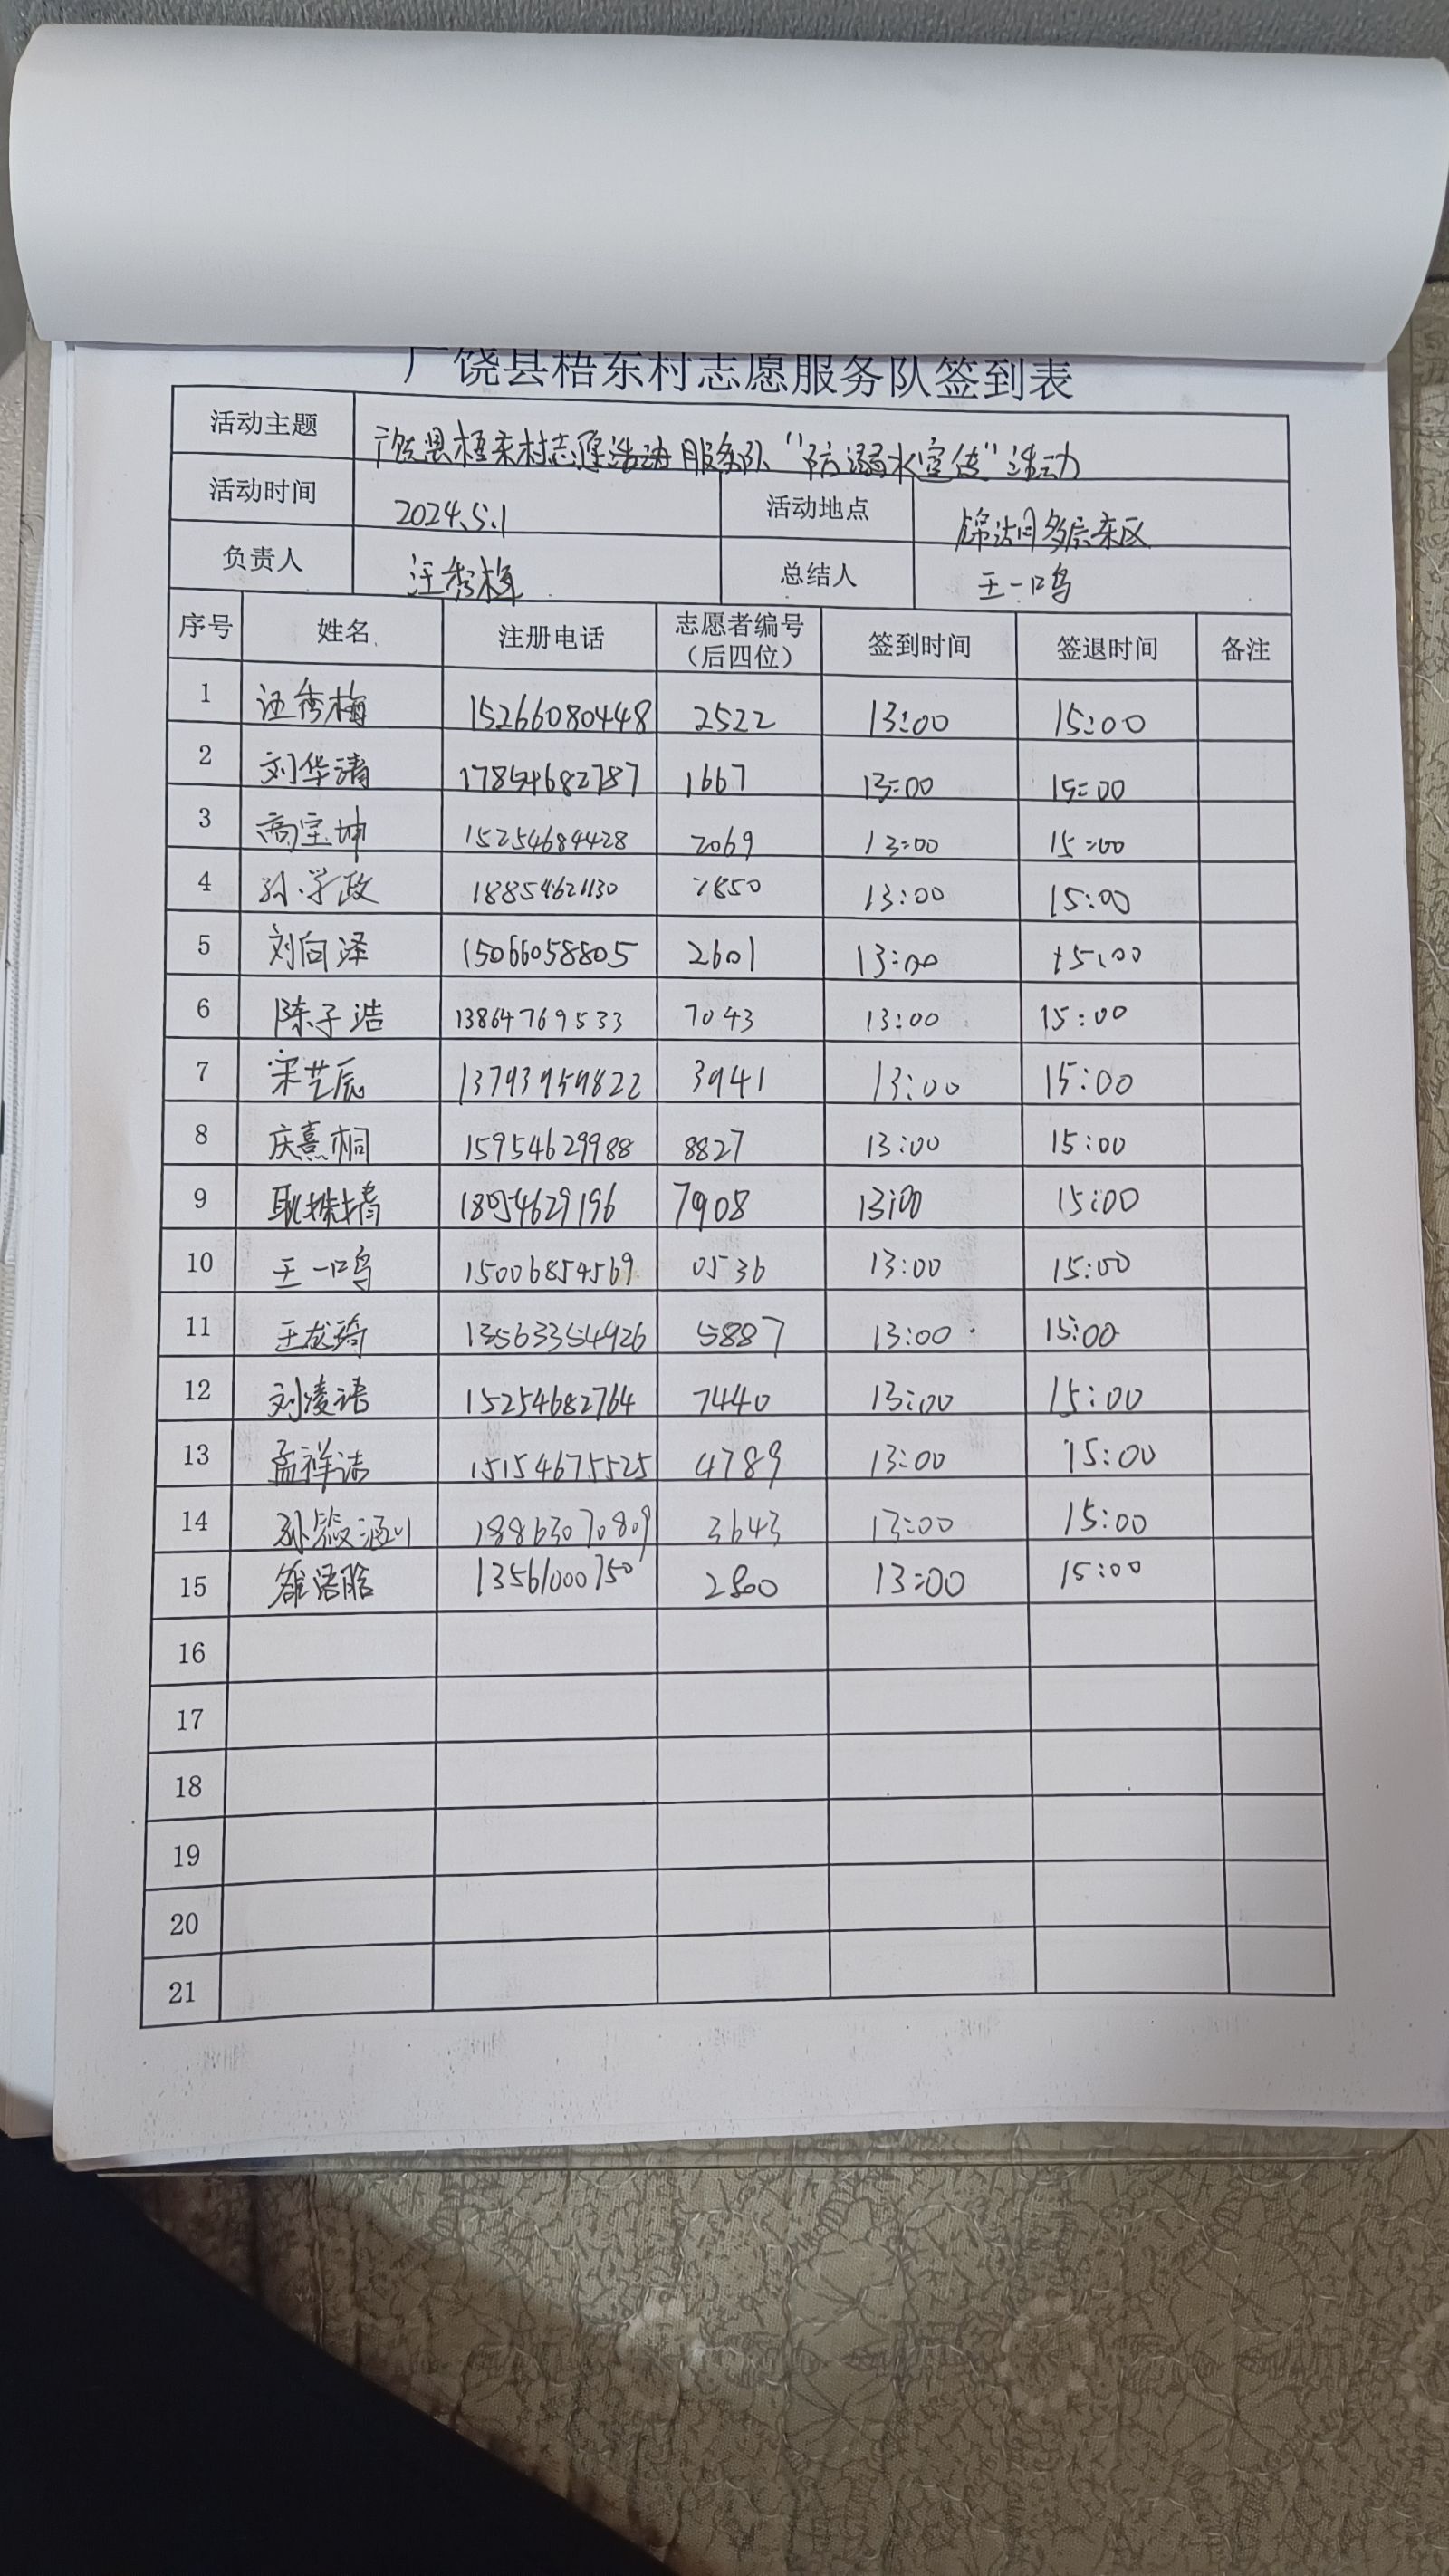 广饶县梧东村志愿服务队签到表
活动主题 广饶县梧东村志愿活动服务队“防溺水宣传”活动
活动时间 2024.5.1 活动地点 锦湖多层东区
负责人 汪秀梅 总结人 王一鸣
序号 姓名 注册电话 志愿者编号（后四位） 签到时间 签退时间 备注
1 汪秀梅 15266080448 2522 13:00 15:00
2 刘华清 17854682787 1667 13:00 15:00
3 商宝坤 15254684428 2069 13:00 15:00
4 孙学政 18854621130 7850 13:00 15:00
5 刘向泽 15066058805 2601 13:00 15:00
6 陈子浩 13864769533 7043 13:00 15:00
7 宋艺辰 13793959822 3941 13:00 15:00
8 庆熹桐 15954629988 8827 13:00 15:00
9 耿 18054629196 7908 13:00 15:00
10 王一鸣 15006854569 0536 13:00 15:00
11 王龙琦 13563354926 5887 13:00 15:00
12 刘凌语 15254682764 7440 13:00 15:00
13 孟祥洁 15154675525 4789 13:00 15:00
14 孙 18863070809 3643 13:00 15:00
15 语晗 13561000750 2800 13:00 15:00
16
17
18
19
20
21